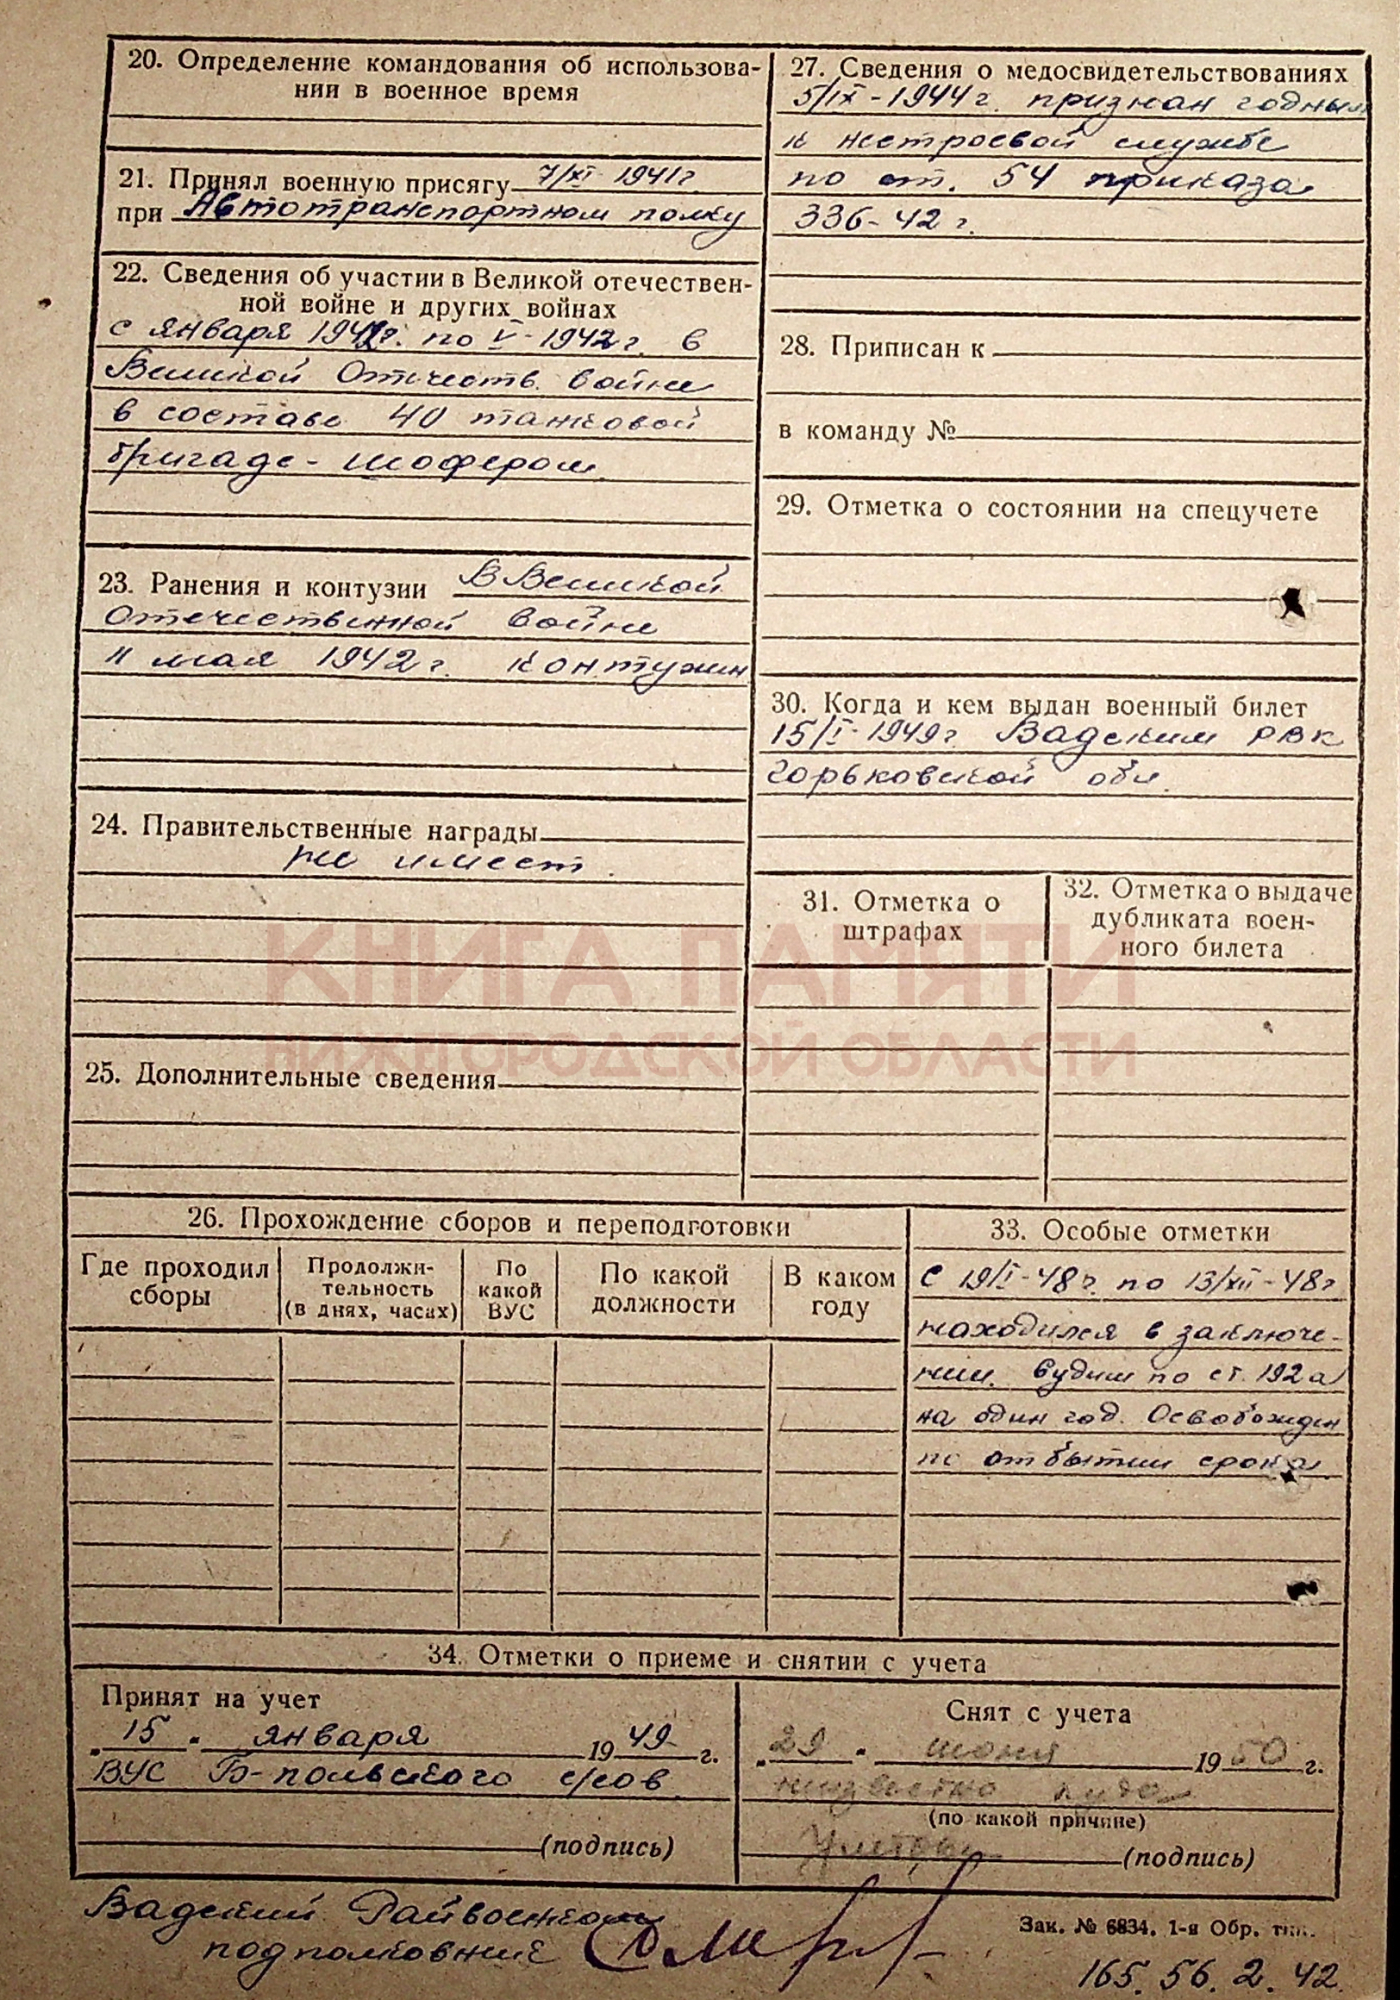 20. Определение командования об использова-
нии в военное время
21. Принял военную присягу 7/XI-1941г
при Автотранспортном полку
22. Сведения об участии в Великой отечествен-
ной войне и других войнах
с января 1942г. по V-1942г. в
Великой Отечеств. войне
в составе 40 танковой
бригаде - шофером
23. Ранения и контузии В Великой
Отечественной войне
11 мая 1942г. контужен
24. Правительственные награды
не имеет.
25. Дополнительные сведения
27. Сведения о медосвидетельствованиях
5/IX-1944г. признан годным
к нестроевой службе
по ст. 54 приказа
336-42г.
28. Приписан к
в команду №
29. Отметка о состоянии на спецучете
30. Когда и кем выдан военный билет
15/I-1949г. Вадским РВК
Горьковской обл.
31. Отметка о
штрафах
32. Отметка о выдаче
дубликата воен-
ного билета
КНИГА ПАМЯТИ
НИЖЕГОРОДСКОЙ ОБЛАСТИ
26. Прохождение сборов и переподготовки
Где проходил
сборы
Продолжи-
тельность
(в днях, часах)
По
какой
ВУС
По какой
должности
В каком
году
33. Особые отметки
С 19/I-48г. по 13/XII-48г
находился в заключе-
нии. судим по ст. 192а
на один год. Освобожден
по отбытии срока
34. Отметки о приеме и снятии с учета
Принят на учет
"15" января 1949 г.
ВУС Б-польского с/сов
(подпись)
Снят с учета
"29" июня 1950 г.
неизвестно куда
(по какой причине)
(подпись)
Вадский Райвоенком
подполковник
Зак. № 6834. 1-я Обр. тип.
165. 56. 2. 42.